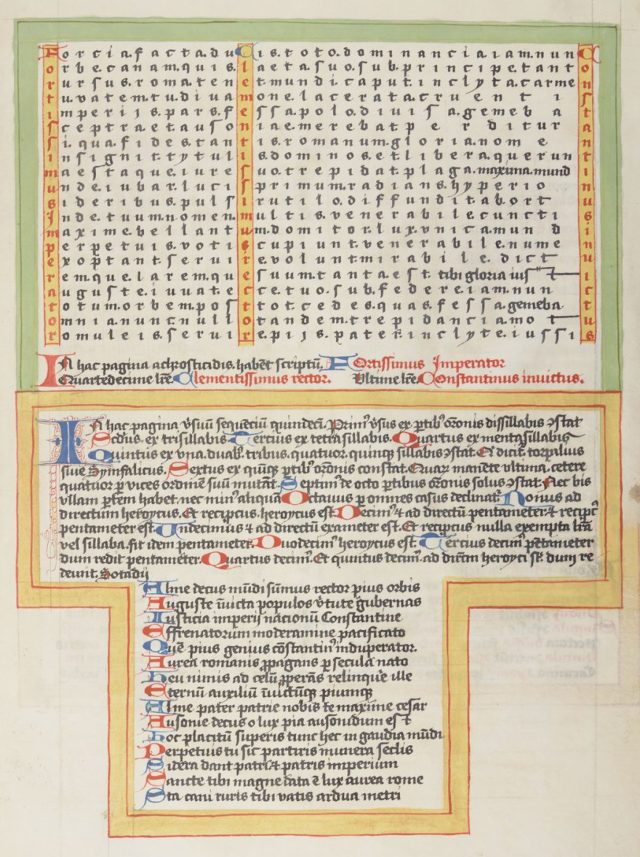 Forcia.facta.du Cis.toto.dominancia.iam.nun C
orbecanam.quis. laeta.suo.sub.principe.tant o
rursus.roma.ten et.mundi.caput.inclyta.carme n
t uvatem.tu.diva m one.lacerata.cruenti s
imperijs.pars.f essa.polo.divisa.gemeba t
sceptra.et.auso n iae.merebat perditur a
si.qua.fides.tan t is.romanum.gloria.nome n
insignit.tytul i s.dominos.et.libera.querun t
maestaque.stan s uo.trepidat.plaga.maxima.mund i
unde.iubar.luci s primum.radians.hyperio n
sideribus.puls i rutilo.diffundit.abort u
inde.tuum.nomen m ultis.venerabile.cuncti s
maxime.bellant u m.domitor.lux.vnica.mund i
perpetuis.voti s cupiunt.venerabile.nume n
exoptant.servi r evolunt.mirabile.dict u
remque.larem.qu e suum.tanta.est.tibi.gloria.ius t
auguste.iuvat.e c ce.tuo.sub.federe.iam.nun c
totum.orbem.pos t tot.cedes.quas.fessa.gemeba t
omnia.nunc.null o tandem.trepidancia.mot u
romuleis.servi r epijs.pater.inclyte.iussi s
In hac pagina achrosticidis. habet scriptu. Fortissimus Imperator
Quartedecime lre. Clementissimus rector. Vltime lre Constantinus invictus.
In hac pagina vsuu sequeciu quindeci. Prim9 vsus ex ptib9 oronis dissillabis ostat
Secds. ex trisillabis Tercius ex tetrasillabis. Quartus ex mentasillabis
Quintus ex vna. duab9. tribus. quatuor. quinq3 sillabis ostat Et dicit. torpalius
siue Symfalicus. Sextus ex quiq3 ptib9 oronis constat. Quar manete vltima. cetere
quatuor p vices ordine suu mutat. Septim9 de octo ptibus oronis solus ostat. Nec bis
vllam ptem habet. nec min9 aliqua Octauus p omnes casus declinat. Nonus ad
directum heroycus. Et recipcus. heroycus est. Decim9 & ad directu pentameter. & recipc9
pentameter est. Undecimius & ad directu exameter est. Et recipcus nulla exempta lra
vel sillaba. fit idem pentameter. Duodecim9 heroycus est. Tercius decim9 petameter
dum redit pentameter. Quartus decim9. Et quintus decim9. ad direm heroyci st. dum re
deunt. Sotadij
Alme decus mudi sumus rector pius orbis
Auguste iuicta populos vtute gubernas
Iusticia imperii nacionum Constantine
Effrenatorum moderamine pacificato
Que pius genius costantin9 induperator.
Aurea romanis ppagans p secula nato
heu nimis ad celu pperas relinque ille
Eternu auxiliu iuictuq3 piumq3
Alme pater patrie nobis te maxime cesar
Ausonie decus o lux pia ausonidum es &
hoc placitu superis tunc hec in gaudia mudi
Perpetuus tu sic partiris munera seclis
Sidera dant patri & patris imperium
Sancte tibi magne data & lux aurea rome
Sta cani turis tibi vatis ardua metri